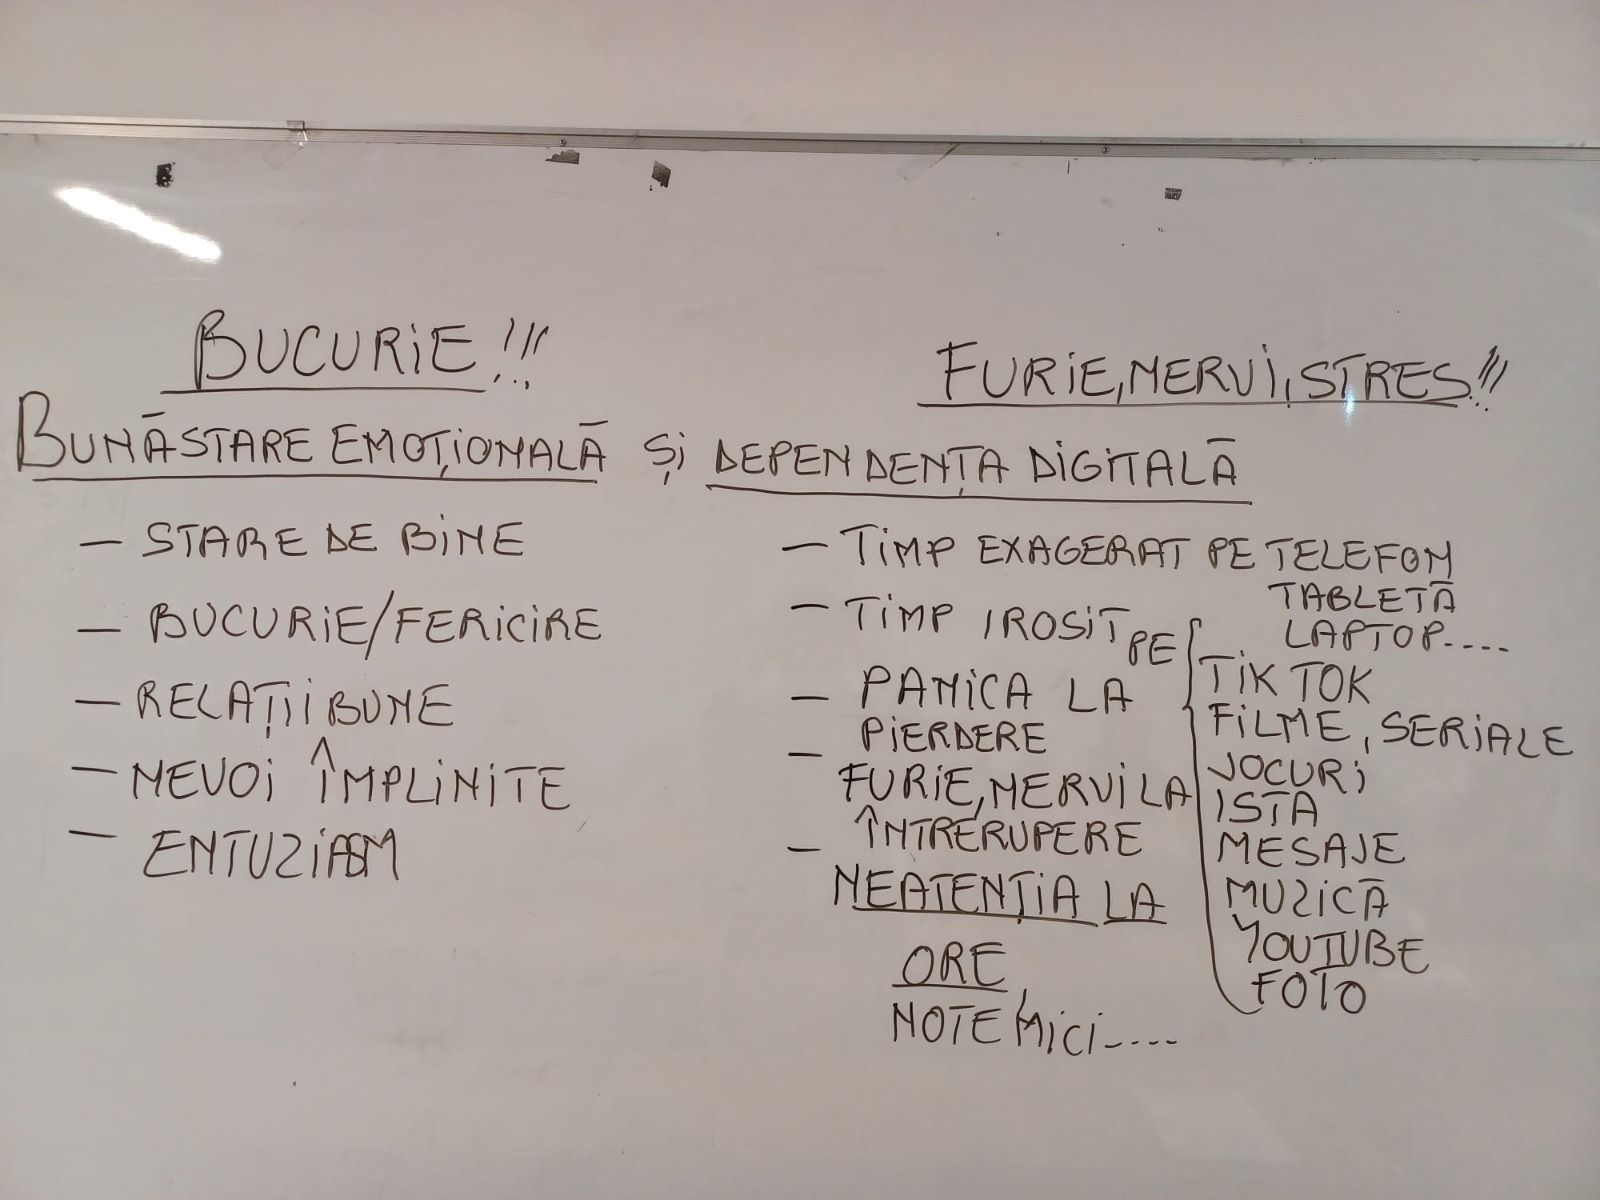 BUCURIE!!!
FURIE, NERVI, STRES!!!
BUNĂSTARE EMOȚIONALĂ ȘI DEPENDENȚA DIGITALĂ
– STARE DE BINE
– BUCURIE/FERICIRE
– RELAȚII BUNE
– NEVOI ÎMPLINITE
– ENTUZIASM
– TIMP EXAGERAT PE TELEFON
TABLETĂ
LAPTOP....
– TIMP IROSIT PE
TIK TOK
FILME, SERIALE
JOCURI
ISTA
MESAJE
MUZICĂ
YOUTUBE
FOTO
– PANICA LA
PIERDERE
– FURIE, NERVI LA
ÎNTRERUPERE
– NEATENȚIA LA
ORE,
NOTE MICI....